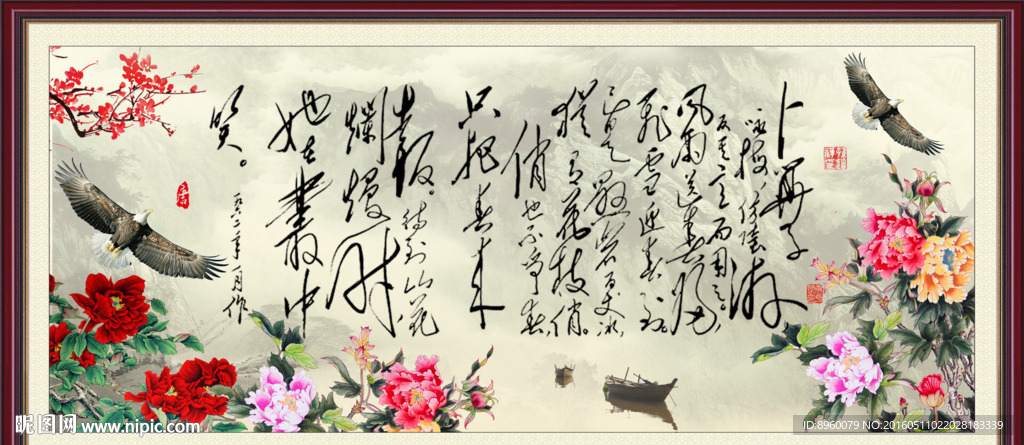 卜算子
咏梅 仿陸游
反其意而用之。
風雨送春歸
飛雪迎春到
已是懸崖百丈冰
猶有花枝俏。
俏也不争春
只把春来
報。待到山花
爛熳時
她在叢中
笑。
一九六二年一月作
昵图网 www.nipic.com
ID:8960079 NO:20160511022028183339